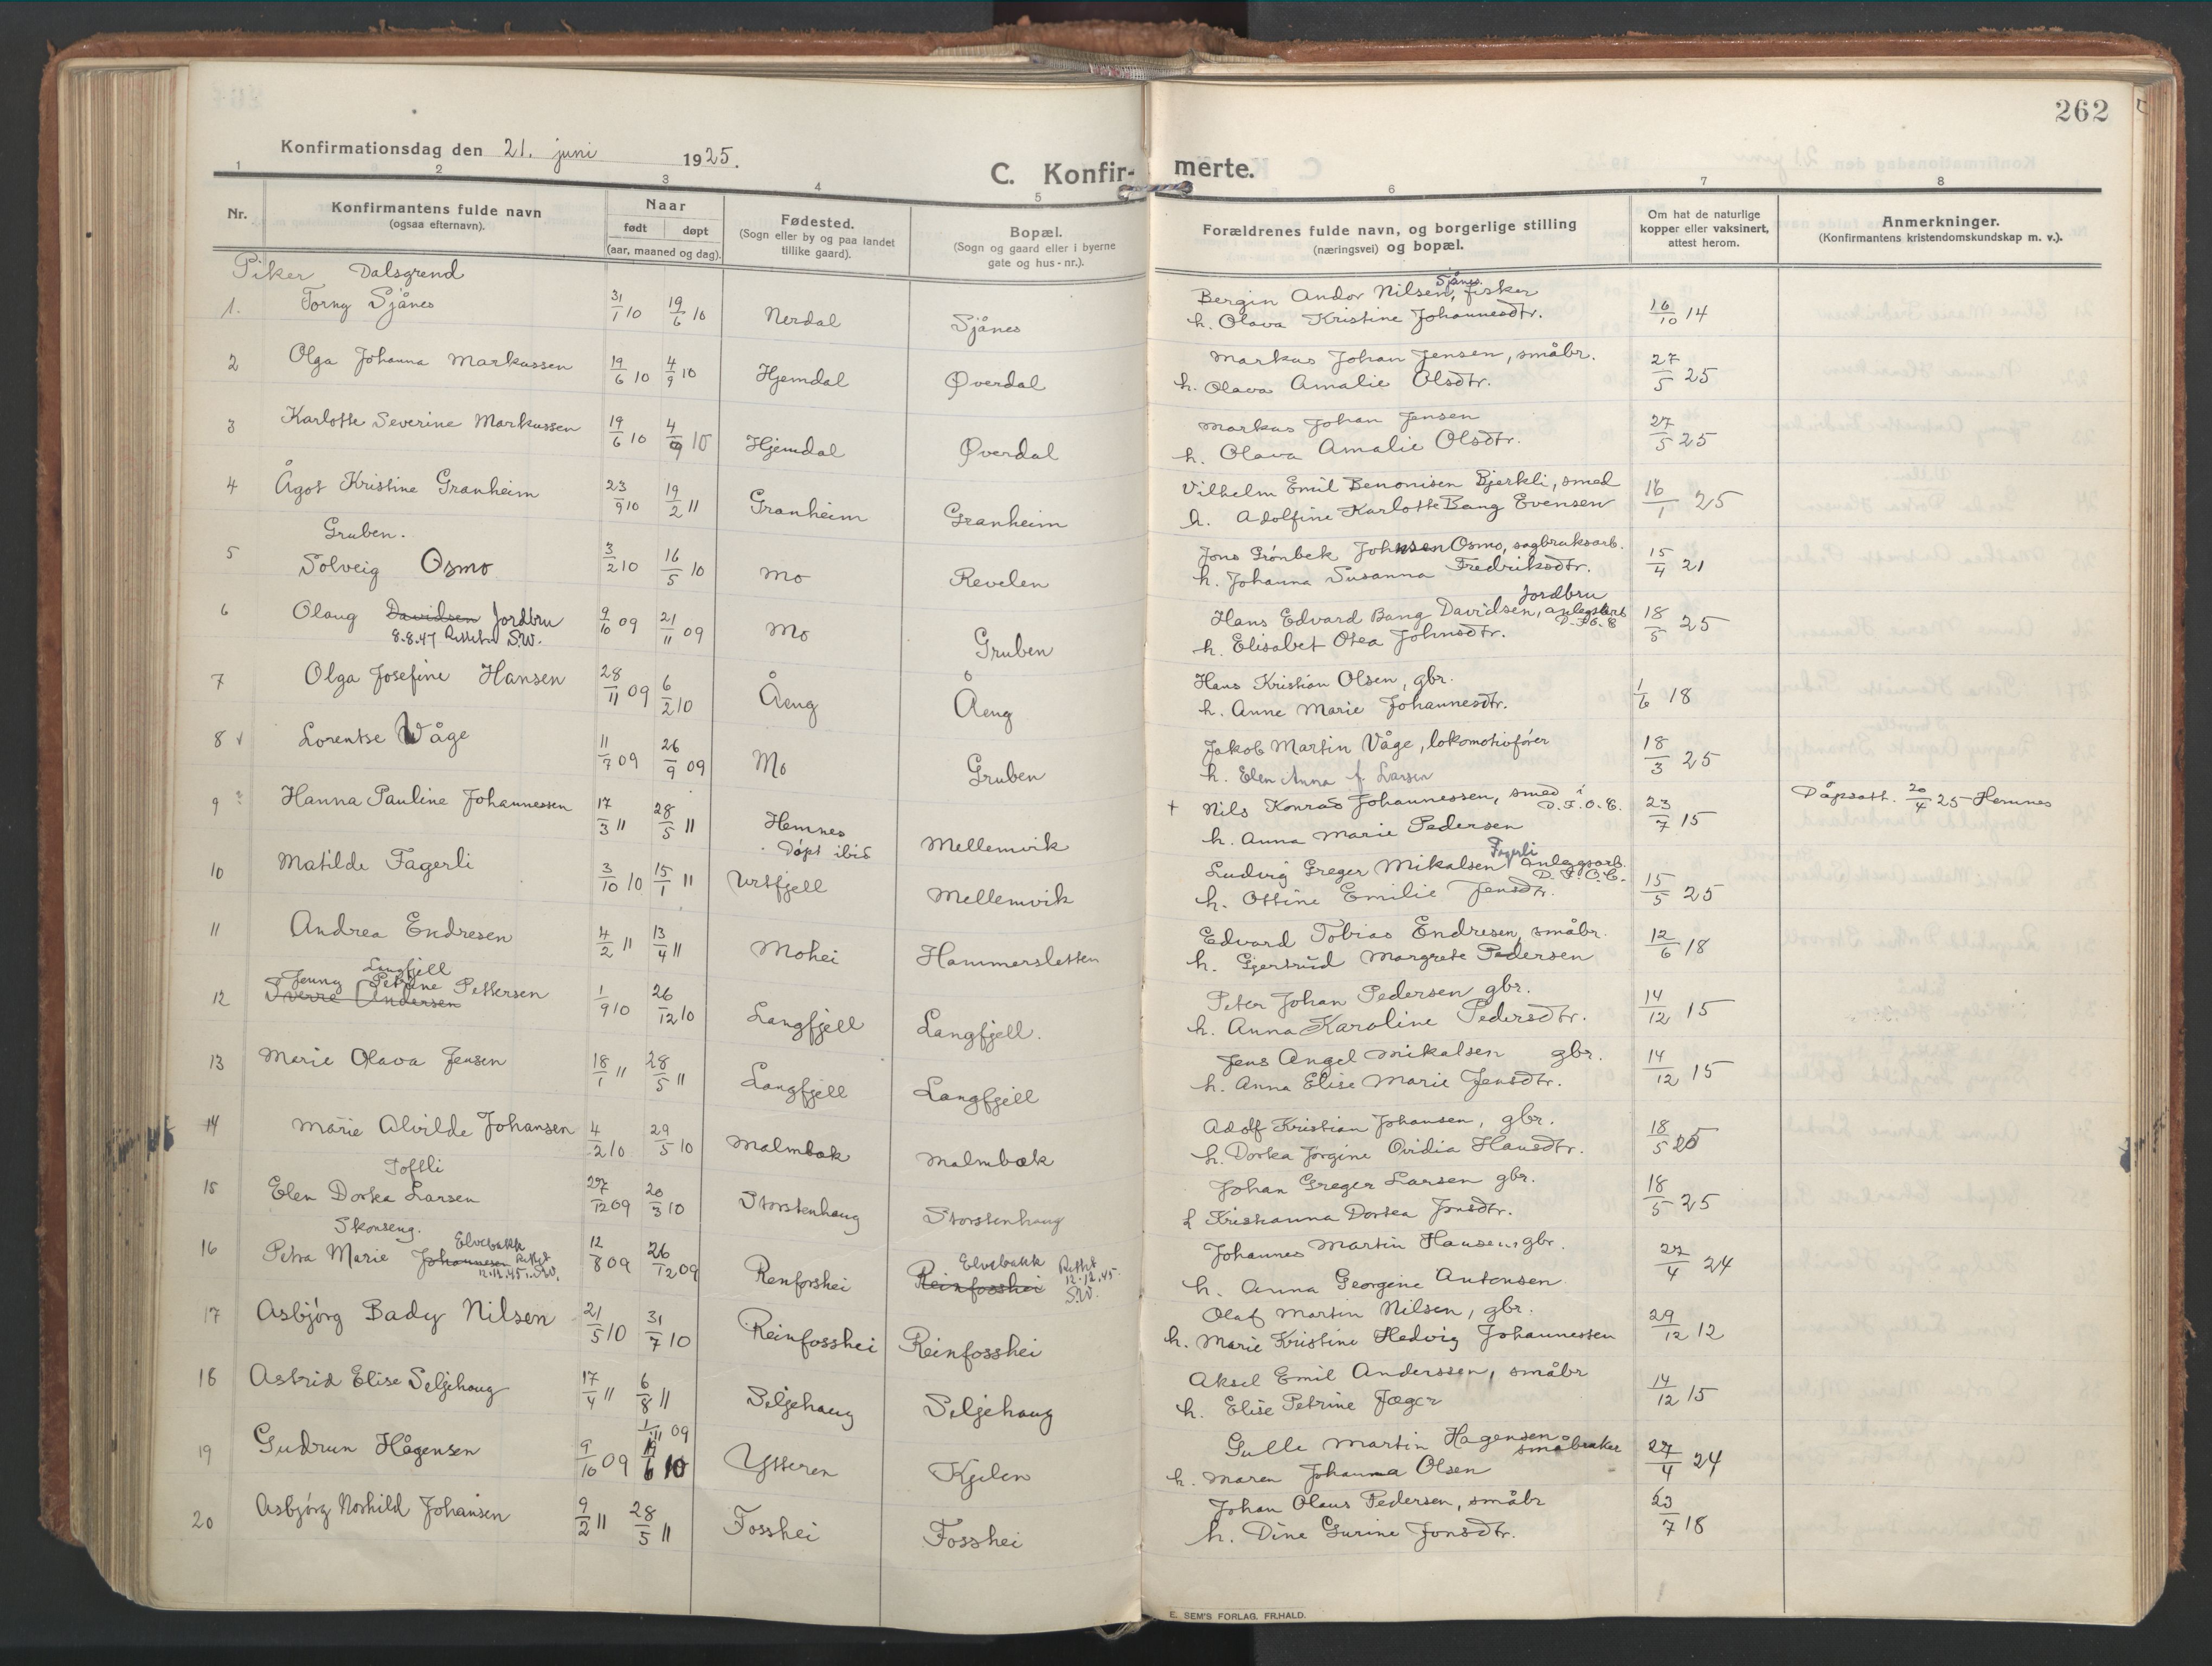 262
Konfirmationsdag den 21. juni 1925.
C. Konfir- merte.
1 2 3 4 5 6 7 8
Nr. Konfirmantens fulde navn (ogsaa efternavn). Naar født døpt (aar, maaned og dag). Fødested. (Sogn eller by og paa landet tillike gaard). Bopæl. (Sogn og gaard eller i byerne gate og hus-nr.). Forældrenes fulde navn, og borgerlige stilling (næringsvei) og bopæl. Om hat de naturlige kopper eller vaksinert, attest herom. Anmerkninger. (Konfirmantens kristendomskundskap m. v.).
Piker Dalsgrend
1. Torny Sjånes 31/1 10 19/6 10 Nerdal Sjånes Bergin Andor Nilsen, Sjånes. fisker 16/10 14
h. Olava Kristine Johannesdtr.
2 Olga Johanna Markussen 19/6 10 4/9 10 Hjemdal Øverdal Markus Johan Jensen, småbr. 27/5 25
h. Olava Amalie Olsdtr.
3 Karlotte Severine Markussen 19/6 10 4/9 10 Hjemdal Øverdal Markus Johan Jensen 27/5 25
h. Olava Amalie Olsdtr.
4 Ågot Kristine Granheim 23/9 10 19/2 11 Granheim Granheim Vilhelm Emil Benonisen Bjerkli, smed 16/1 25
h. Adolfine Karlotte Bang Evensen
Gruben.
5 Solveig Osmo 3/2 10 16/5 10 Mo Revelen Jons Grønbek Johnsen Osmo, sagbruksarb. 15/4 21
h. Johanna Susanna Fredriksdtr.
6 Olaug Davidsen Jordbru 9/10 09 21/11 09 Mo Gruben Hans Edvard Bang Davidsen, Jordbru anlegsarb 18/5 25
8.8.47 Rettet S.W.
h. Elisabet Otea Johnsdtr.
7 Olga Josefine Hansen 28/11 09 6/2 10 Åeng Åeng Hans Kristian Olsen, gbr. 1/6 18
h. Anne Marie Johannesdtr.
8 √ Lorentse Våge 11/7 09 26/9 09 Mo Gruben Jakob Martin Våge, lokomotivfører 18/3 25
h. Elen Anna f. Larsen
9 Hanna Pauline Johannessen 17/3 11 28/5 11 Hemnes Døpt ibid Mellemvik + Nils Konrad Johannessen, smed i D.F.O.C. 23/7 15 Dåpsatt. 20/4 25 Hemnes
h. Anna Marie Pedersen
10 Matilde Fagerli 3/10 10 15/1 11 Urtfjell Mellemvik Ludvig Greger Mikalsen Fagerli anleggsarb. D.F.O.C. 15/5 25
h. Ottine Emilie Jensdtr.
11 Andrea Endresen 4/2 11 13/4 11 Mohei Hammersletten Edvard Tobias Endresen, småbr. 12/6 18
h. Gjertrud Margrete Pedersen
Langfjell
12 Jenny Petrine Pettersen 1/9 10 26/12 10 Langfjell Langfjell. Peter Johan Pedersen gbr. 14/12 15
Sverre Andersen
h. Anna Karoline Pedersdtr.
13 Marie Olava Jensen 18/1 11 28/5 11 Langfjell Langfjell Jens Angel Mikalsen gbr. 14/12 15
h. Anna Elise Marie Jensdtr.
14 Marie Alvilde Johansen 4/2 10 29/5 10 Malmbæk Malmbæk Adolf Kristian Johansen, gbr. 18/5 25
h. Dorka Jørgine Ovidia Hansdtr.
Toftli
15 Elen Dorka Larsen 27/12 09 20/3 10 Storstenhaug Storstenhaug Johan Greger Larsen gbr. 18/5 25
h Kristianna Dortea Jonsdtr.
Skonseng.
16 Petra Marie Johannesen Elvebakk Rettet 12.12.45. S.W. 12/8 09 26/12 09 Renforshei Reinfosshei Elvebakk Rettet 12.12.45. S.W. Johannes Martin Hansen, gbr. 27/4 24
h. Anna Georgine Antonsen
17 Asbjørg Bady Nilsen 21/5 10 31/7 10 Reinfosshei Reinfosshei Olaf Martin Nilsen, gbr. 29/12 12
h. Marie Kristine Hedvig Johannessen
18 Astrid Elise Seljehaug 17/4 11 6/8 11 Seljehaug Seljehaug Aksel Emil Anderssen, småbr 14/12 15
h. Elise Petrine Jæger
19 Gudrun Hågensen 9/10 09 1/11 09 Ytteren Kjelen Gulle Martin Hagensen småbruker 27/4 24
h. Maren Johanna Olsen
20 Asbjørg Norhild Johansen 9/2 11 28/5 11 Fosshei Fosshei Johan Olaus Pedersen, småbr 23/7 18
h. Dine Gurine Jonsdtr.
E. SEM'S FORLAG. FR.HALD.